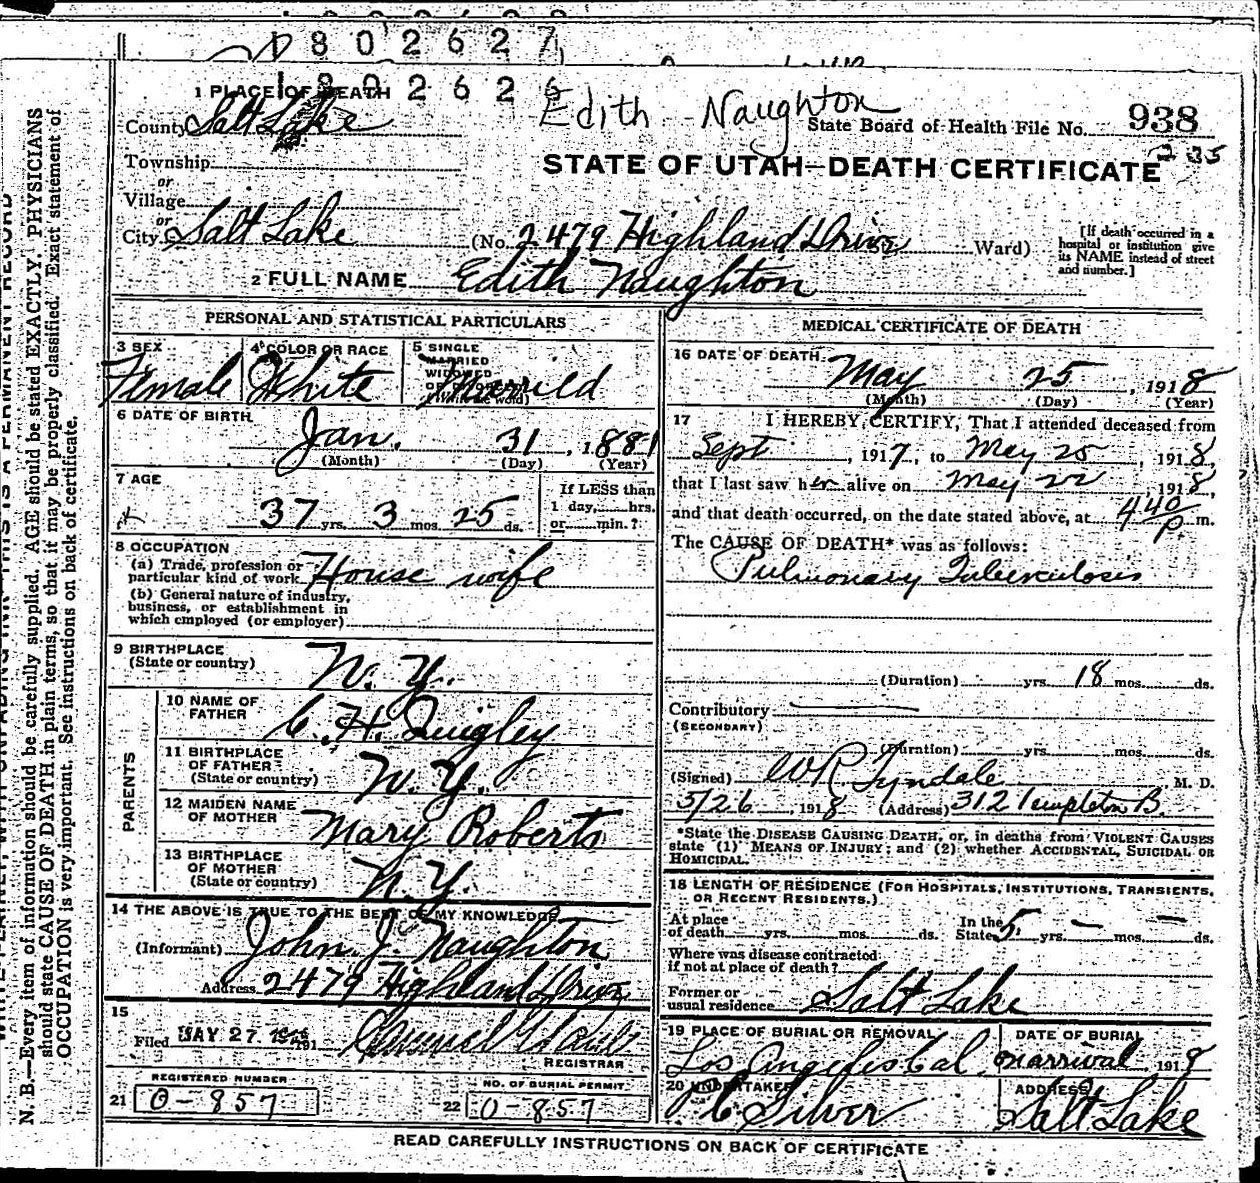 1802627
1802626
Edith Naughton
1 PLACE OF DEATH
County Salt Lake
State Board of Health File No. 938
235
Township
or
Village
or
City Salt Lake
STATE OF UTAH—DEATH CERTIFICATE
(No. 2479 Highland Drive St. Ward)
[If death occurred in a
hospital or institution give
its NAME instead of street
and number.]
2 FULL NAME Edith Naughton
PERSONAL AND STATISTICAL PARTICULARS
3 SEX
Female
4 COLOR OR RACE
White
5 SINGLE
MARRIED
WIDOWED
OR DIVORCED
(Write the word)
Married
6 DATE OF BIRTH
Jan. 31, 1881
(Month) (Day) (Year)
7 AGE
37 yrs. 3 mos. 25 ds.
If LESS than
1 day, hrs.
or min.?
8 OCCUPATION
(a) Trade, profession or
particular kind of work House wife
(b) General nature of industry,
business, or establishment in
which employed (or employer)
9 BIRTHPLACE
(State or country)
N. Y.
PARENTS
10 NAME OF
FATHER
C. H. Quigley
11 BIRTHPLACE
OF FATHER
(State or country)
N. Y.
12 MAIDEN NAME
OF MOTHER
Mary Roberts
13 BIRTHPLACE
OF MOTHER
(State or country)
N. Y.
14 THE ABOVE IS TRUE TO THE BEST OF MY KNOWLEDGE
(Informant) John J. Naughton
Address 2479 Highland Drive
15
Filed MAY 27 191
REGISTRAR
REGISTERED NUMBER
21 0-857
NO. OF BURIAL PERMIT
22 0-857
MEDICAL CERTIFICATE OF DEATH
16 DATE OF DEATH
May 25, 1918
(Month) (Day) (Year)
17 I HEREBY CERTIFY, That I attended deceased from
Sept, 1917, to May 25, 1918,
that I last saw her alive on May 22, 1918,
and that death occurred, on the date stated above, at 4 40 P. m.
The CAUSE OF DEATH* was as follows:
Pulmonary Tuberculosis
(Duration) yrs. 18 mos. ds.
Contributory
(SECONDARY)
(Duration) yrs. mos. ds.
(Signed) W R Tyndale, M. D.
5/26 1918 (Address) 312 Templeton B.
*State the DISEASE CAUSING DEATH, or, in deaths from VIOLENT CAUSES
state (1) MEANS OF INJURY; and (2) whether ACCIDENTAL, SUICIDAL OR
HOMICIDAL.
18 LENGTH OF RESIDENCE (FOR HOSPITALS, INSTITUTIONS, TRANSIENTS,
OR RECENT RESIDENTS.)
At place
of death yrs. mos. ds.
In the
State 5 yrs. — mos. — ds.
Where was disease contracted
if not at place of death?
Former or
usual residence Salt Lake
19 PLACE OF BURIAL OR REMOVAL
Los Angeles Cal.
DATE OF BURIAL
on arrival 1918
20 UNDERTAKER
Silver
ADDRESS
Salt Lake
READ CAREFULLY INSTRUCTIONS ON BACK OF CERTIFICATE
N. B.—Every item of information should be carefully supplied. AGE should be stated EXACTLY. PHYSICIANS
should state CAUSE OF DEATH in plain terms, so that it may be properly classified. Exact statement of
OCCUPATION is very important. See instructions on back of certificate.